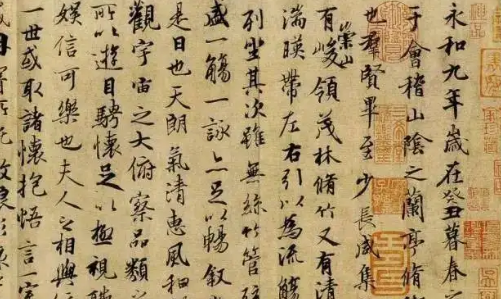 永和九年歲在癸丑暮春之
于會稽山陰之蘭亭脩
也羣賢畢至少長咸集
有崇山峻領茂林脩竹又有清
湍暎帶左右引以為流觴
列坐其次雖無絲竹管
盛一觴一詠亦足以暢敘
是日也天朗氣清惠風和
觀宇宙之大俯察品類之
所以遊目騁懷足以極視聽
娛信可樂也夫人之相與
一世或取諸懷抱悟言一室